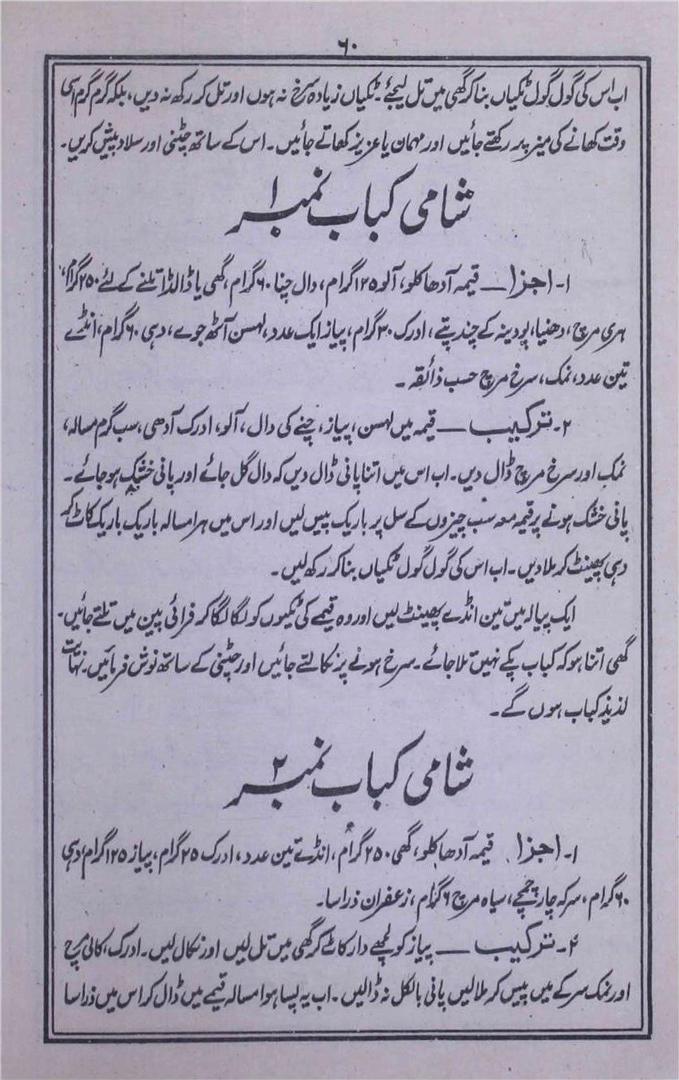 ۶۰
اب اس کی گول گول ٹکیاں بنا کر گھی میں تل لیجئے۔ ٹکیاں زیادہ سرخ نہ ہوں اور تل کر رکھ نہ دیں، بلکہ گرم گرم اسی
وقت کھانے کی میز پر رکھتے جائیں اور مہمان یا عزیز کھاتے جائیں۔ اس کے ساتھ چٹنی اور سلاد پیش کریں۔
شامی کباب نمبر ۱
۱۔ اجزا — قیمہ آدھا کلو، آلو ۱۲۵ گرام، دال چنا ۶۰ گرام، گھی یا ڈالڈا تلنے کے لئے ۲۵۰ گرام،
ہری مرچ، دھنیا، پودینہ کے چند پتے، ادرک ۳۰ گرام، پیاز ایک عدد، لہسن آٹھ جوے، دہی ۶۰ گرام، انڈے
تین عدد، نمک، سرخ مرچ حسب ذائقہ۔
۲۔ ترکیب — قیمہ میں لہسن، پیاز، چنے کی دال، آلو، ادرک آدھی، سب گرم مسالہ،
نمک اور سرخ مرچ ڈال دیں۔ اب اس میں اتنا پانی ڈال دیں کہ دال گل جائے اور پانی خشک ہو جائے۔
پانی خشک ہونے پر قیمہ معہ سب چیزوں کے سل پر باریک پیس لیں اور اس میں ہرا مسالہ باریک باریک کاٹ کر
دہی پھینٹ کر ملا دیں۔ اب اس کی گول گول ٹکیاں بنا کر رکھ لیں۔
ایک پیالہ میں تین انڈے پھینٹ لیں اور وہ قیمے کی ٹکیوں کو لگا لگا کر فرائی پین میں تلتے جائیں۔
گھی اتنا ہو کہ کباب پکے نہیں تلا جائے۔ سرخ ہونے پر نکالتے جائیں اور چٹنی کے ساتھ نوش فرمائیں۔ نہایت
لذیذ کباب ہوں گے۔
شامی کباب نمبر ۲
۱۔ اجزا قیمہ آدھا کلو، گھی ۲۵۰ گرام، انڈے تین عدد، ادرک ۲۵ گرام، پیاز ۱۲۵ گرام، دہی
۶۰ گرام، سرکہ چار چمچے، سیاہ مرچ ۶ گرام، زعفران ذرا سا۔
۲۔ ترکیب — پیاز کو لچھے دار کاٹ کر گھی میں تل لیں اور نکال لیں۔ ادرک، کالی مرچ
اور نمک سرکے میں پیس کر ملا لیں پانی بالکل نہ ڈالیں۔ اب یہ پسا ہوا مسالہ قیمے میں ڈال کر اس میں ذرا سا